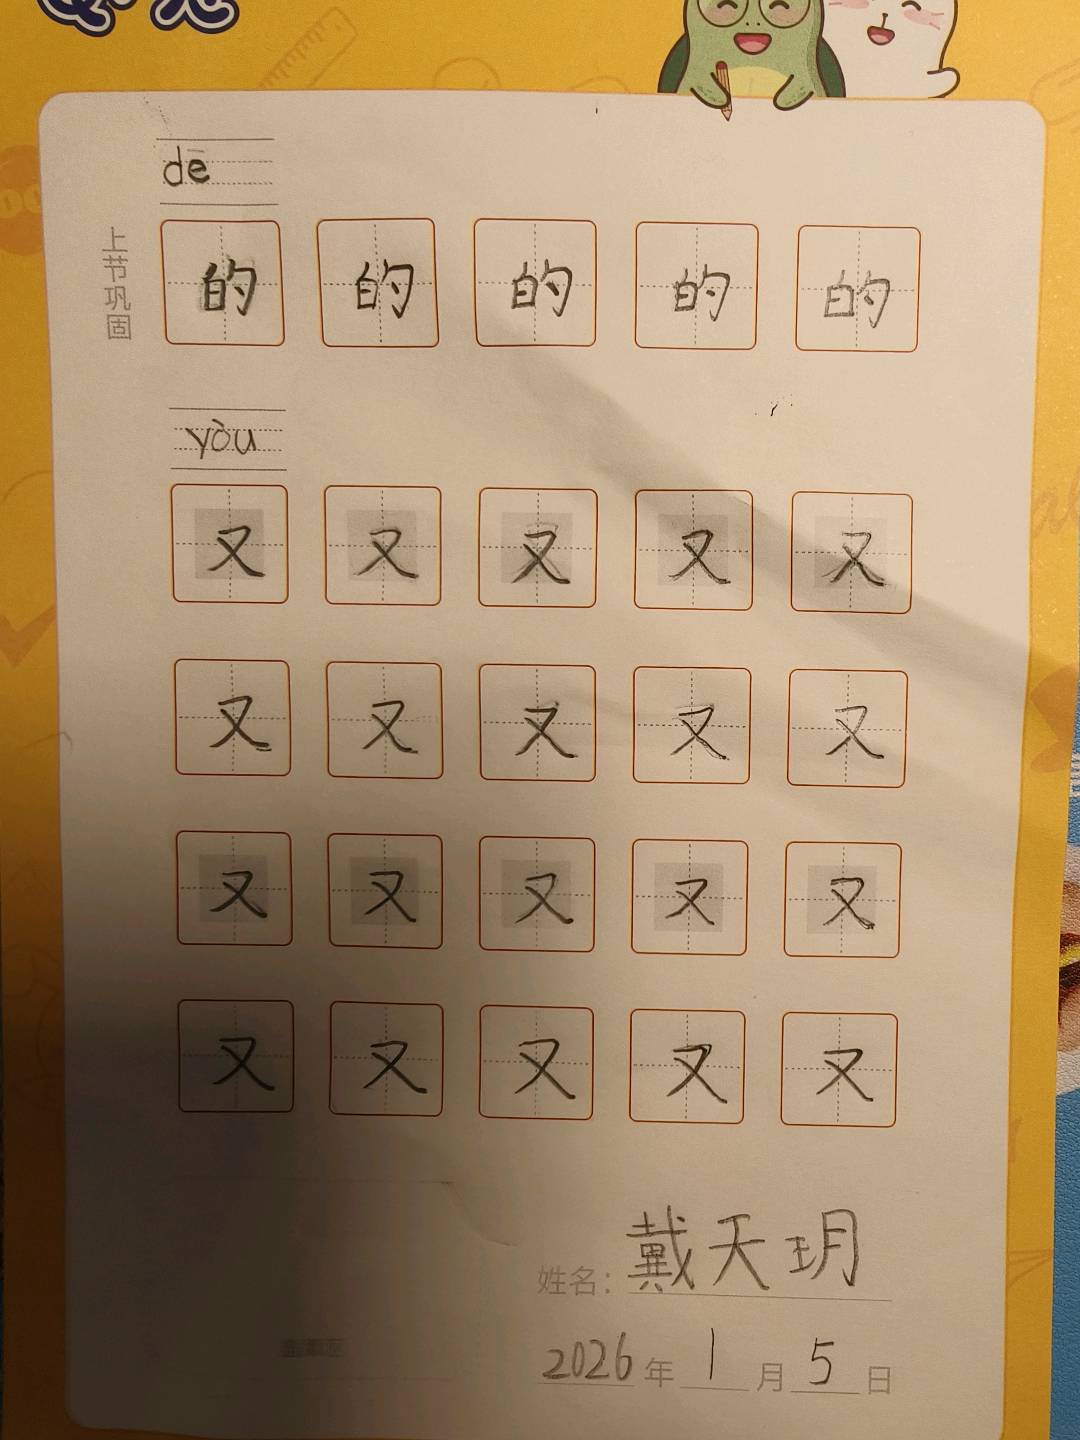 dē
上节巩固
的 的 的 的 的
yòu
又 又 又 又 又
又 又 又 又 又
又 又 又 又 又
又 又 又 又 又
姓名：戴天玥
2026年1月5日